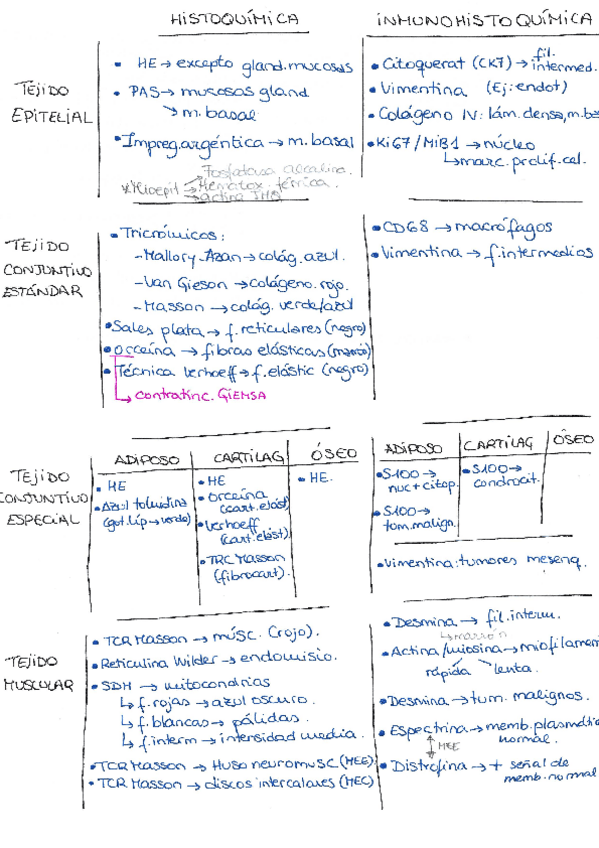 HISTOQUÍMICA
INMUNOHISTOQUÍMICA
TEJIDO
EPITELIAL
• HE → excepto gland. mucosas
• PAS → mucosas gland
↘ m. basal
• Impreg. argéntica → m. basal
* Mioepit → Fosfatasa alcalina.
→ Hematox. férrica.
→ actina
• Citoquerat (CK7) → fil. intermed.
• Vimentina (Ej: endot)
• Colágeno IV: lám. densa, m. ba
• Ki67/MiB1 → núcleo
↳ marc. prolif. cel.
TEJIDO
CONJUNTIVO
ESTÁNDAR
• Tricrómicos:
- Mallory-Azan → colág. azul.
- Van Gieson → colágeno. rojo.
- Masson → colág. verde/azul
• Sales plata → f. reticulares (negro)
• Orceína → fibras elásticas (marró)
• Técnica Verhoeff → f. elástic (negro)
↳ contratinc. GIEMSA
• CD68 → macrófagos
• Vimentina → f. intermedios
TEJIDO
CONJUNTIVO
ESPECIAL
ADIPOSO
CARTILAG
ÓSEO
• HE
• Azul toluidina
(got. líp → verde)
• HE
• Orceína
(cart. elást)
• Verhoeff
(cart. elást)
• TRC Masson
(fibrocart).
• HE.
ADIPOSO
CARTILAG
ÓSEO
• S100 →
nuc + citop.
• S100 →
tum. malign.
• S100 →
condrocit.
• Vimentina: tumores mesenq.
TEJIDO
MUSCULAR
• TCR Masson → músc. (rojo).
• Reticulina Wilder → endomisio.
• SDH → mitocondrias
↳ f. rojas → azul oscuro.
↳ f. blancas → pálidas.
↳ f. interm → intensidad media.
• TCR Masson → Huso neuromusc (MEE)
• TCR Masson → discos intercalares (MEC)
• Desmina → fil. interm.
↳ marrón
• Actina/miosina → miofilamen
rápida lenta.
• Desmina → tum. malignos.
• Espectrina → memb. plasmátic
normal.
↕ MEE
• Distrofina → + señal de
memb. normal